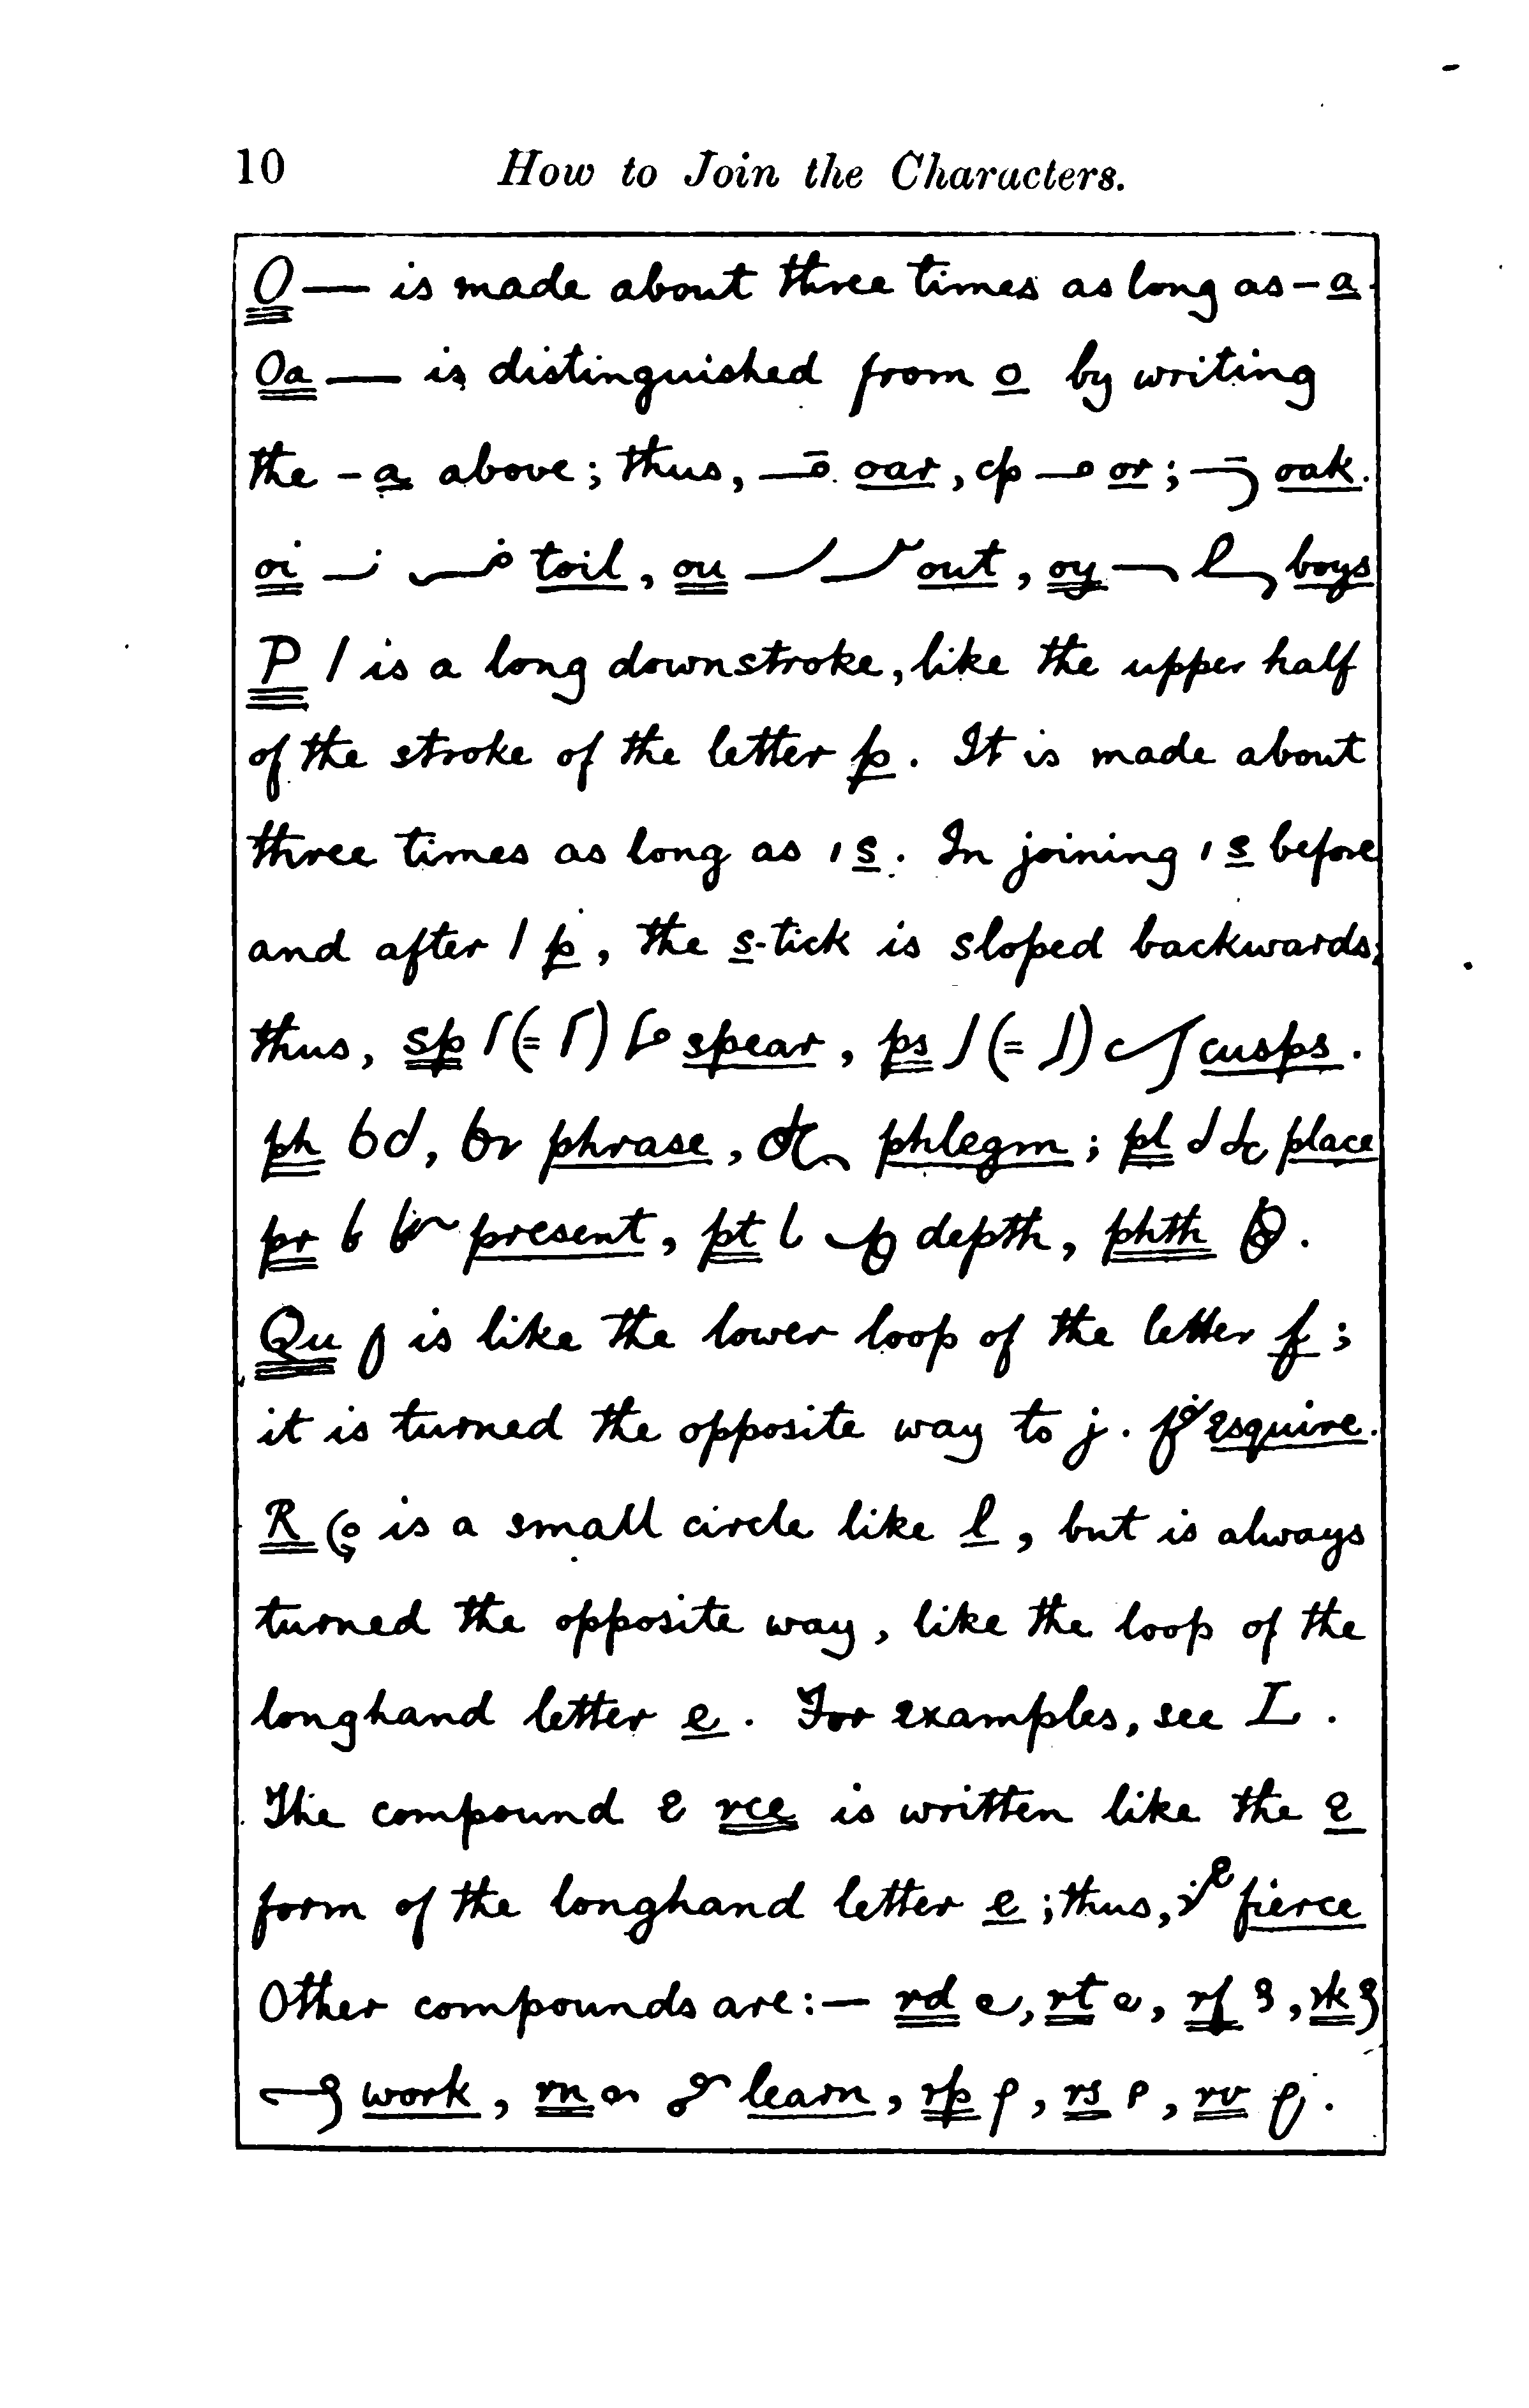 10 How to Join the Characters.
O — is made about three times as long as – a.
Oa — is distinguished from o by writing
the – a above; thus, oar, cp or; oak.
oi toil, ou out, oy boys
P / is a long downstroke, like the upper half
of the stroke of the letter p. It is made about
three times as long as ı s. In joining ı s before
and after / p, the s-tick is sloped backwards;
thus, sp (= ) spear, ps (= ) cusps.
ph , phrase, phlegm; pl place
pr present, pt depth, phth .
Qu is like the lower loop of the letter f;
it is turned the opposite way to j. esquire.
R is a small circle like l, but is always
turned the opposite way, like the loop of the
longhand letter e. For examples, see L.
The compound rce is written like the e
form of the longhand letter e; thus, fierce
Other compounds are:— rd , rt , rf , rk
work, rn learn, rp , rs , rv .